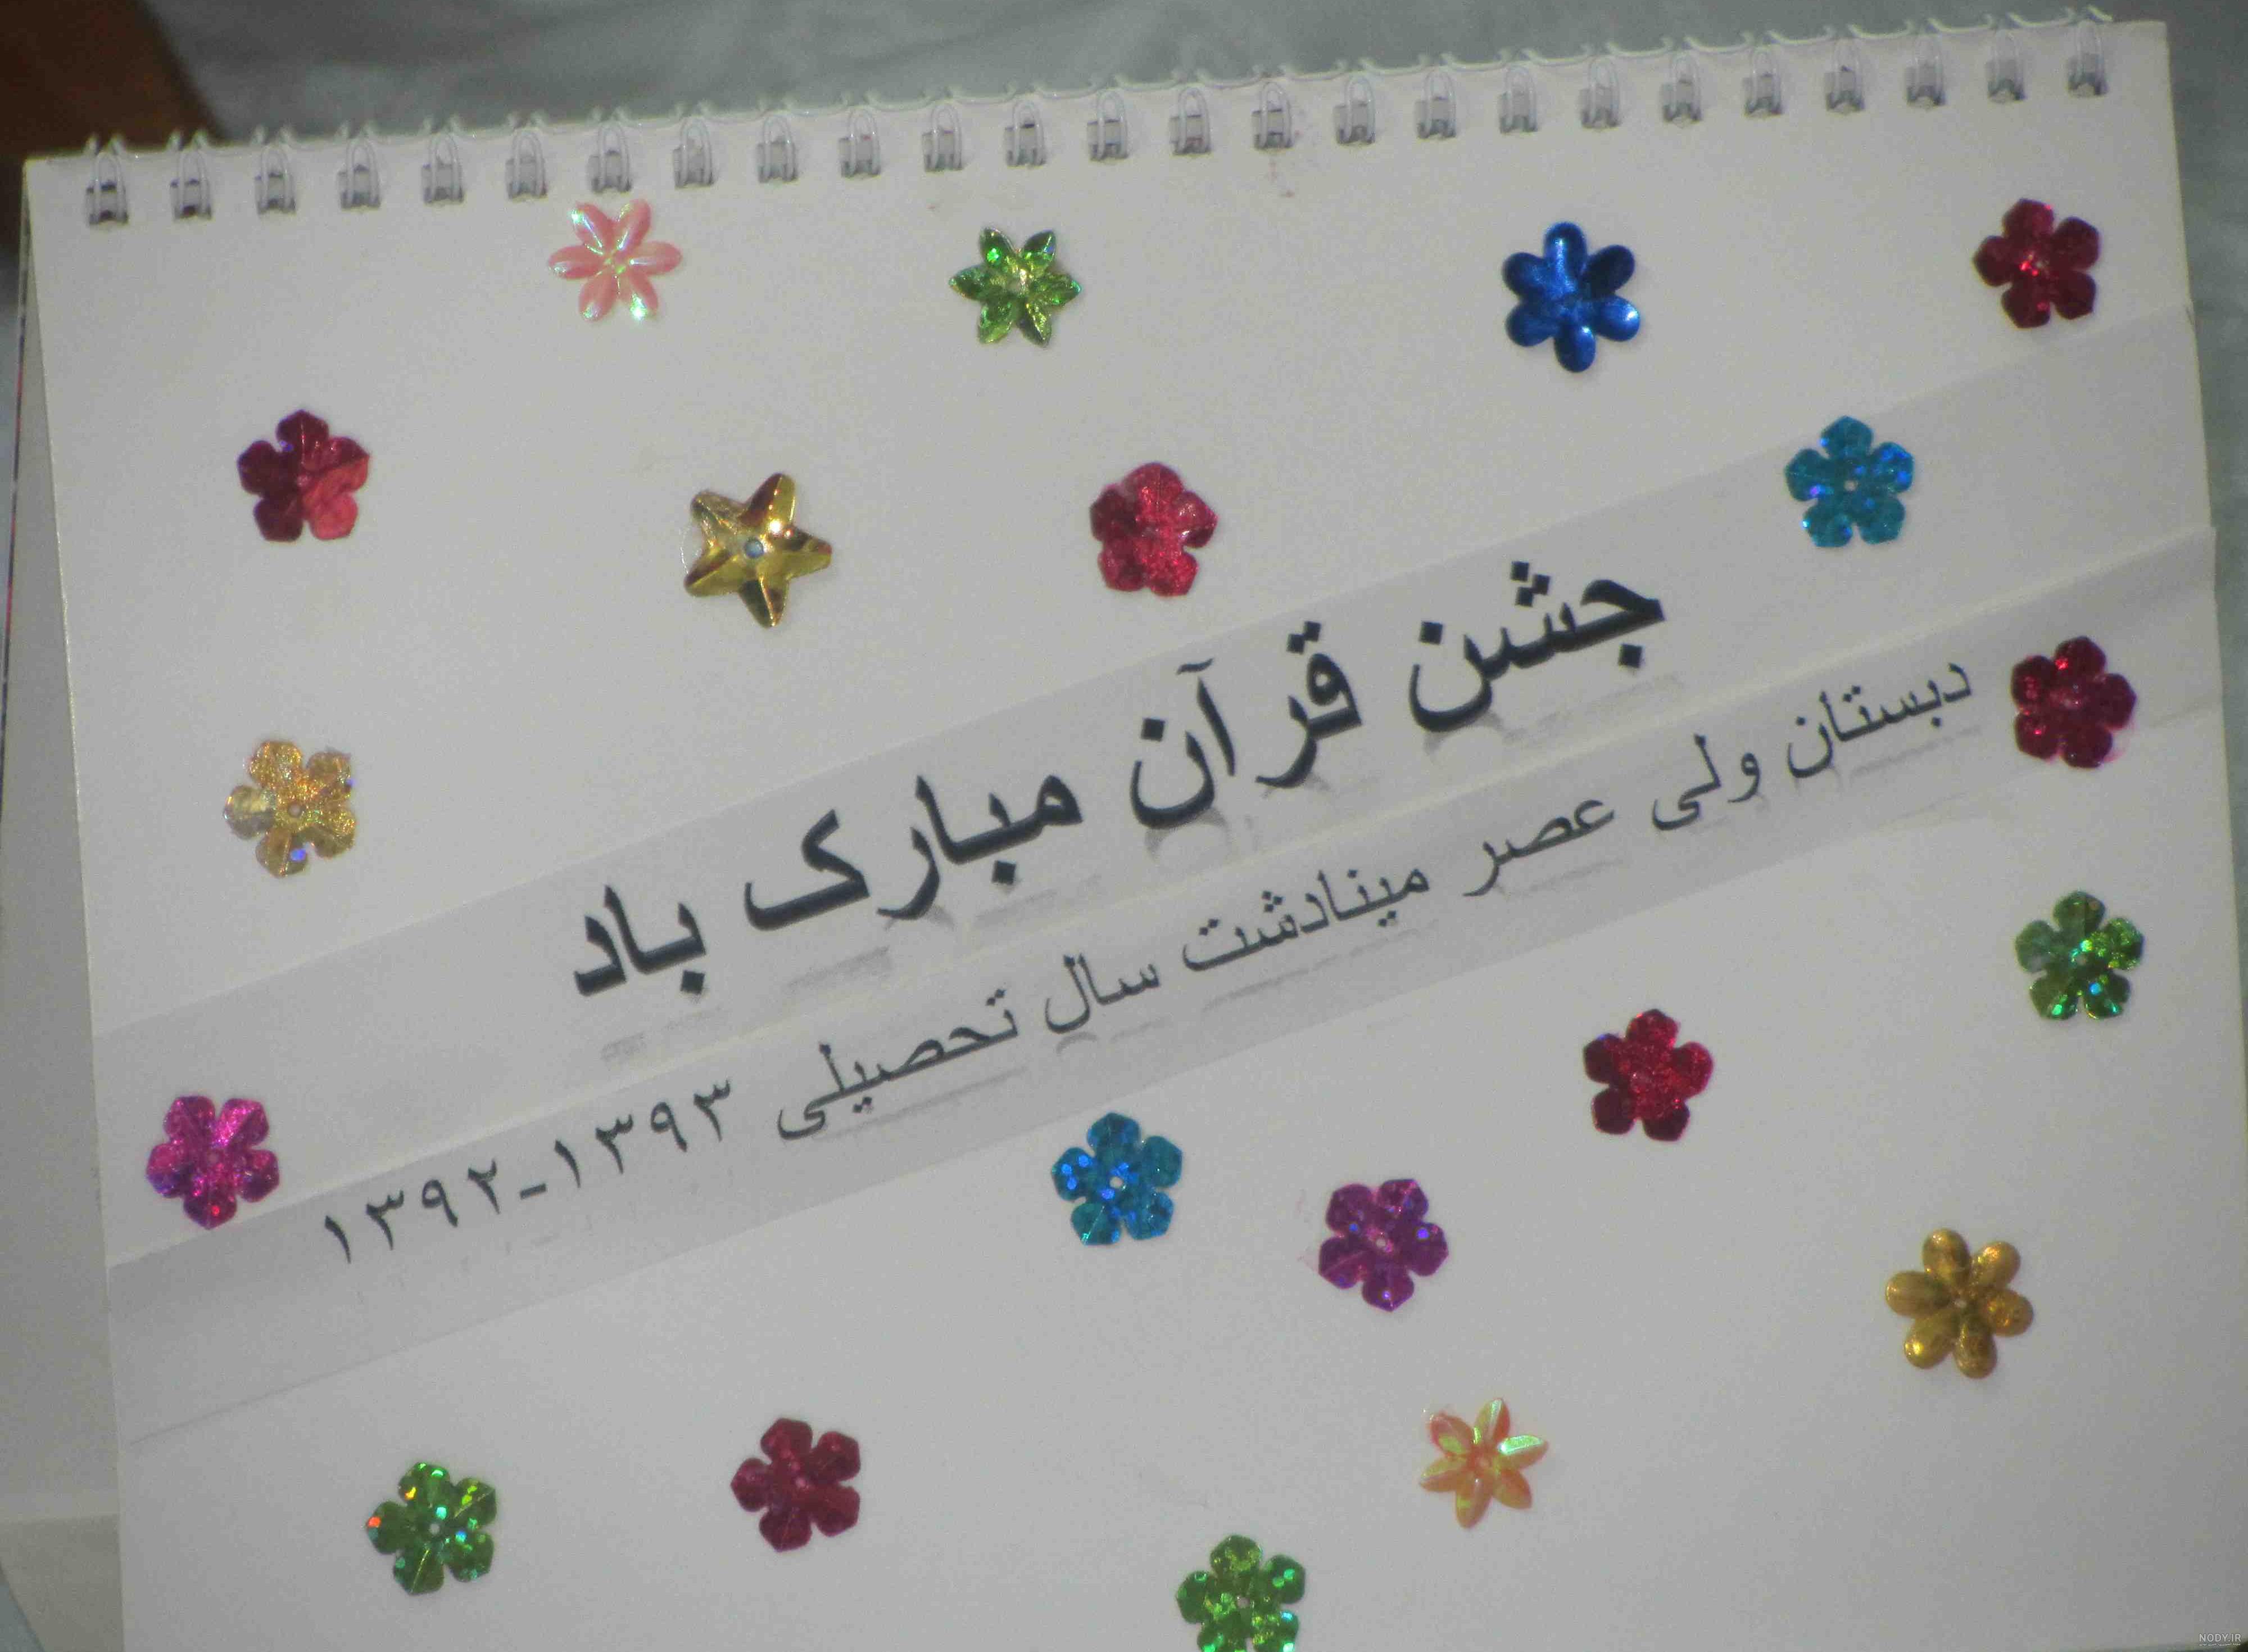 جشن قرآن مبارک باد
دبستان ولی عصر مینادشت سال تحصیلی ۱۳۹۳-۱۳۹۲
NODY.IR